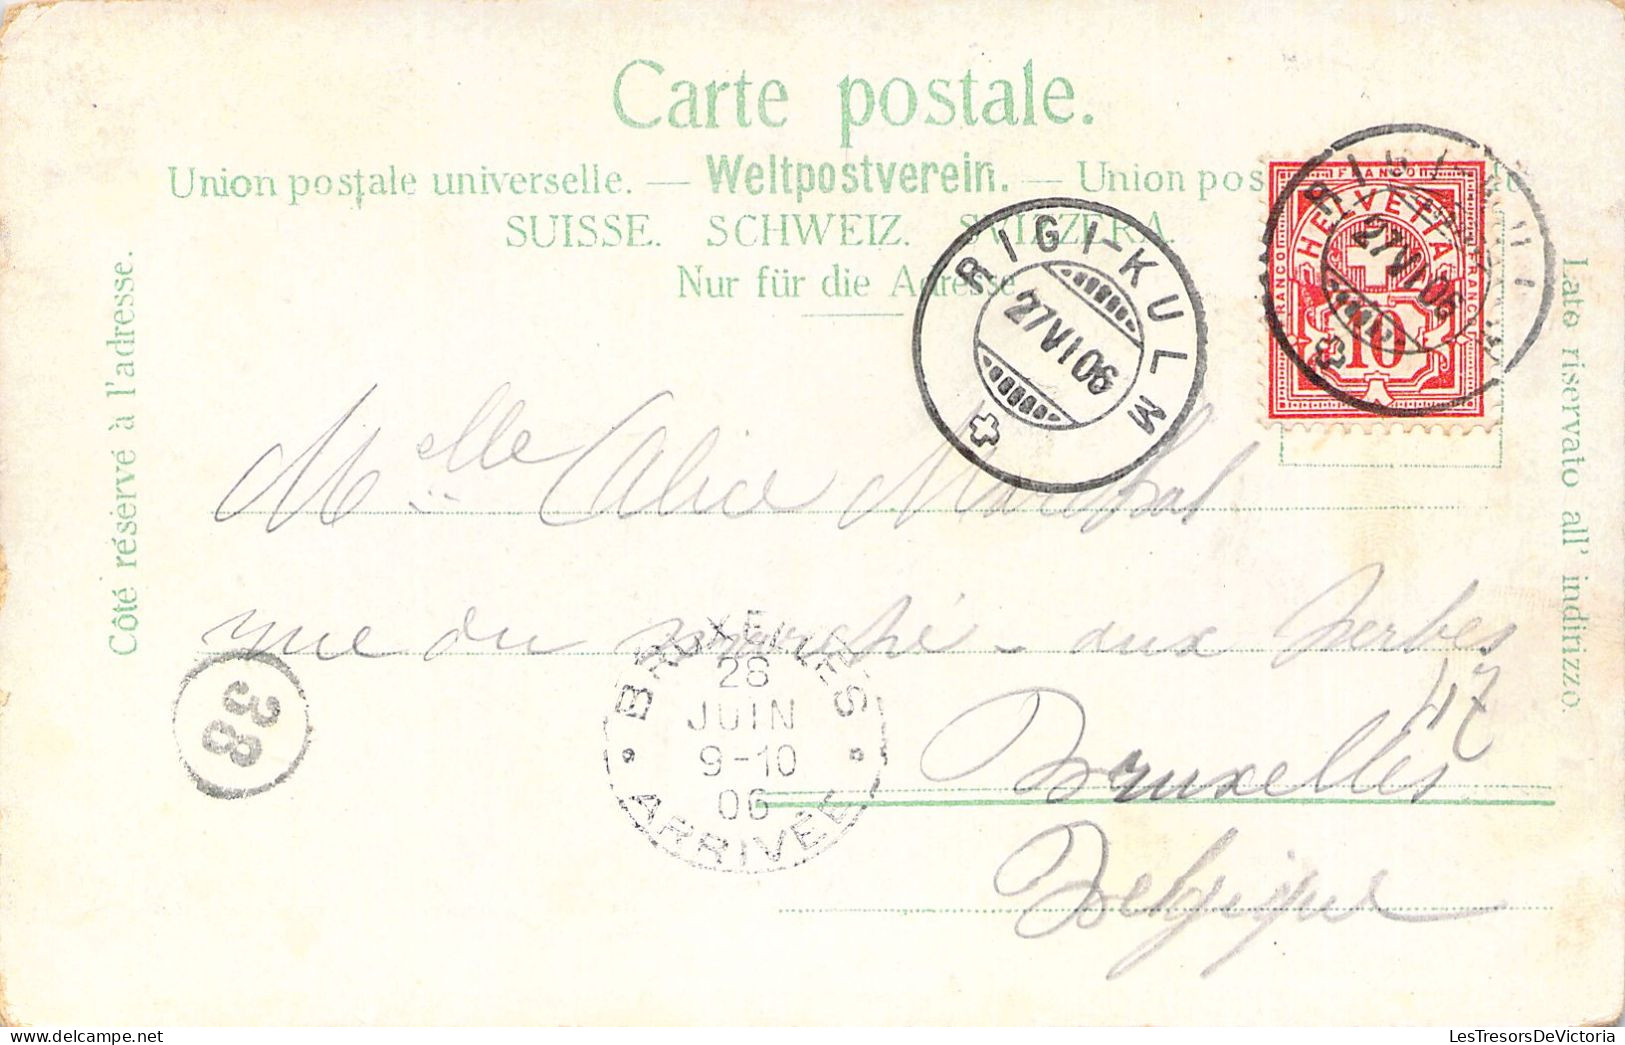 Carte postale.
Union postale universelle. — Weltpostverein. — Union pos
SUISSE. SCHWEIZ. SVIZZERA
Nur für die Adresse
Côté réservé à l'adresse.
Lato riservato all' indirizzo.
FRANCO
HELVETIA
FRANCO
FRANCO
10
RIGI-KULM
27 VI 06
RIGI-KULM
27 VI 06
Melle Alice
rue du marché - aux herbes
47
Bruxelles
Belgique
BRUXELLES
28
JUIN
9-10
06
ARRIVÉE
38
LesTresorsDeVictoria